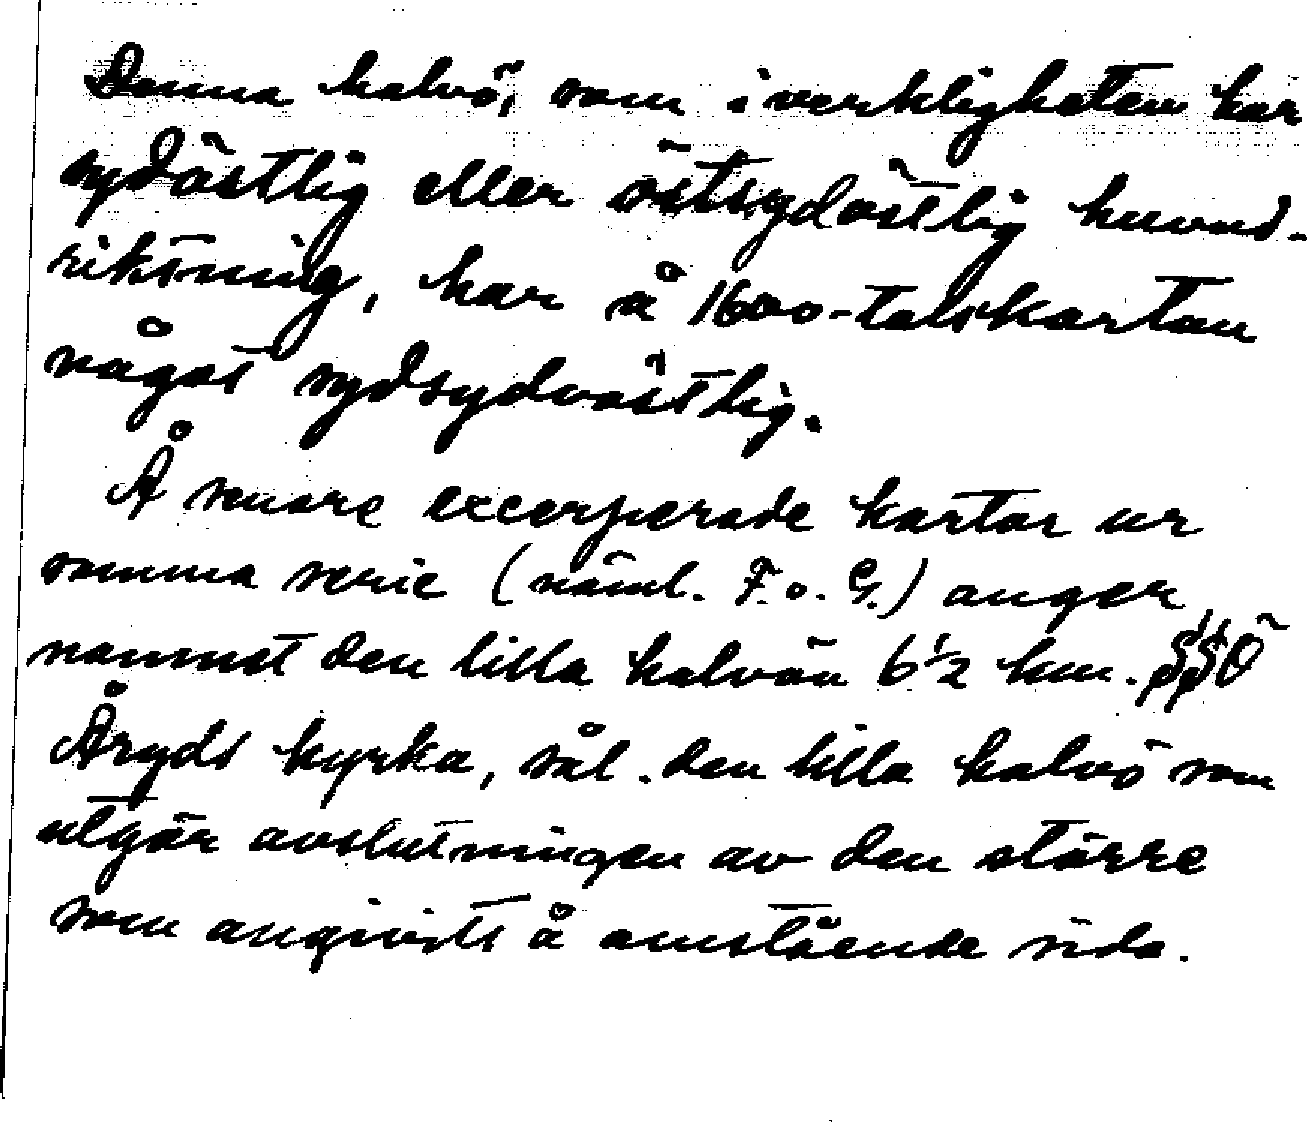 Denna halvö, som i verkligheten har
sydöstlig eller östsydöstlig huvud-
riktning, har å 1600-talskartan
något sydsydvästlig.
Å senare excerperade kartor ur
samma serie (näml. F. o. G.) anger
namnet den lilla halvön 6 1/2 km. SSÖ
Åryds kyrka, sål. den lilla halvö som
utgör avslutningen av den större
som angivits å omstående sida.